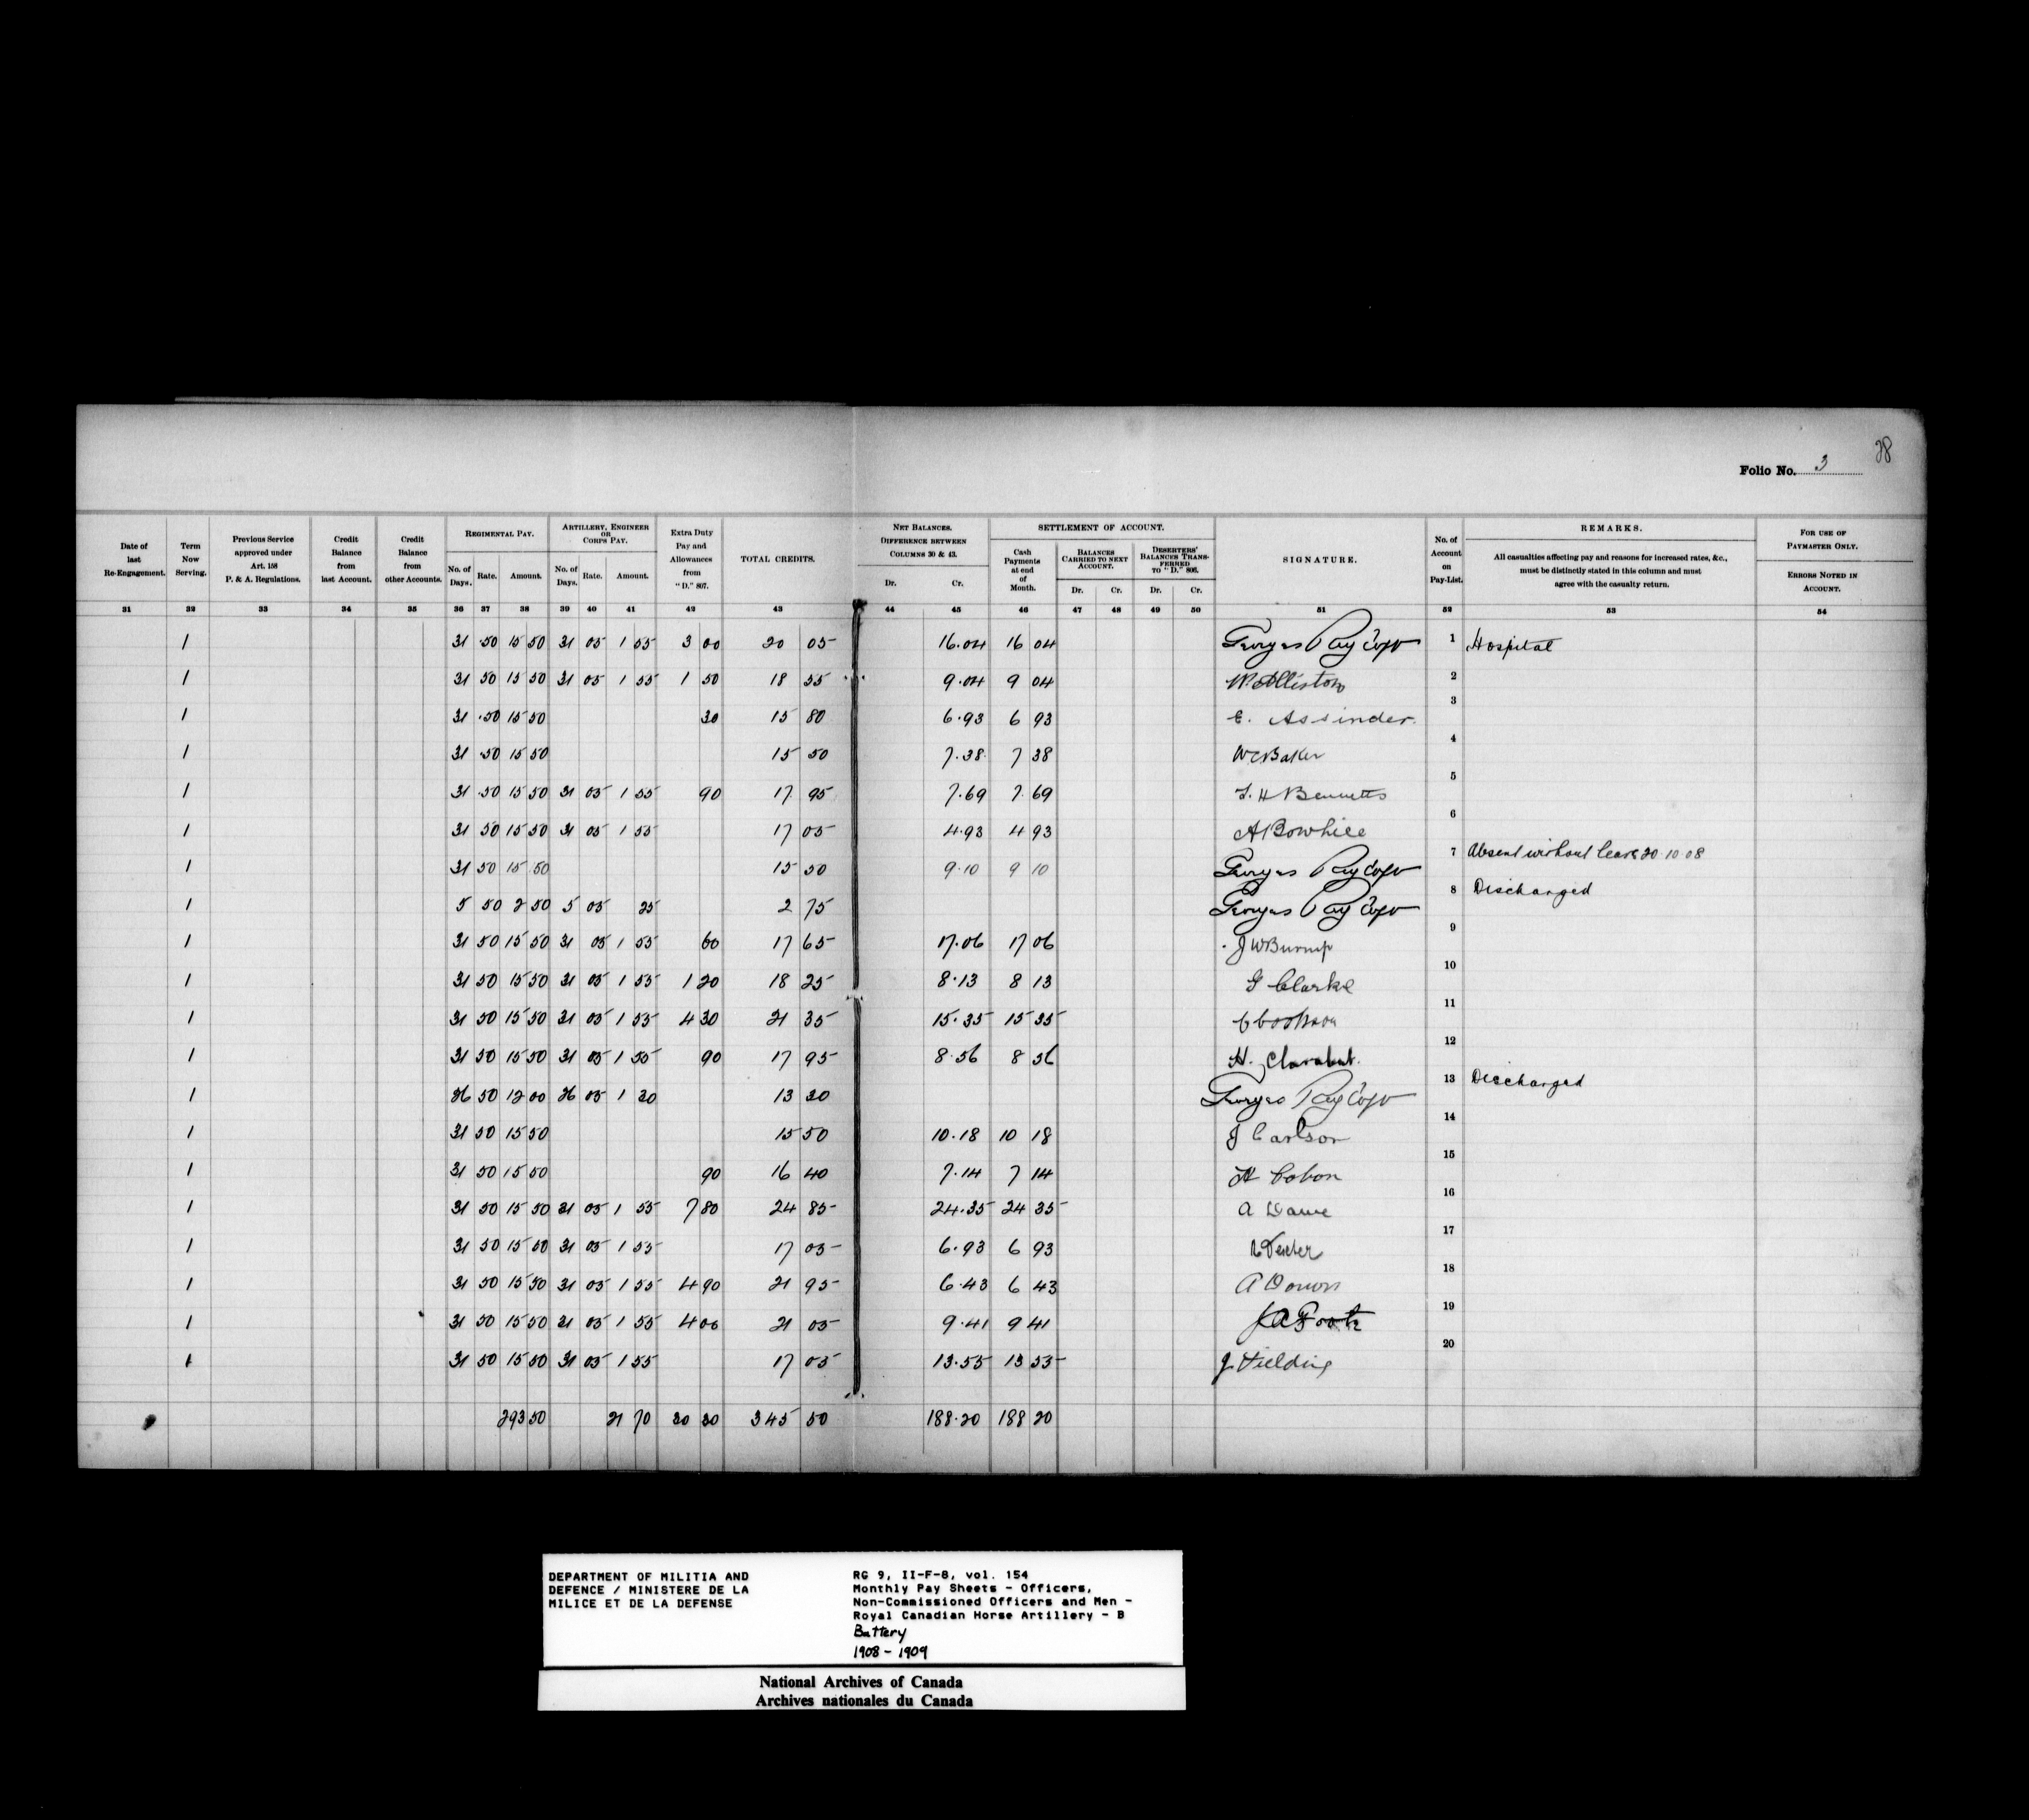 38
Folio No. 3
Date of last Re-Engagement. Term Now Serving. Previous Service approved under Art. 158 P. & A. Regulations. Credit Balance from last Account. Credit Balance from other Accounts. REGIMENTAL PAY. No. of Days. Rate. Amount. ARTILLERY, ENGINEER OR CORPS PAY. No. of Days. Rate. Amount. Extra Duty Pay and Allowances from "D." 807. TOTAL CREDITS. NET BALANCES. DIFFERENCE BETWEEN COLUMNS 30 & 43. Dr. Cr. SETTLEMENT OF ACCOUNT. Cash Payments at end of Month. BALANCES CARRIED TO NEXT ACCOUNT. Dr. Cr. DESERTERS' BALANCES TRANSFERRED TO "D." 806. Dr. Cr. SIGNATURE. No. of Account on Pay-List. REMARKS. All casualties affecting pay and reasons for increased rates, &c., must be distinctly stated in this column and must agree with the casualty return. FOR USE OF PAYMASTER ONLY. ERRORS NOTED IN ACCOUNT.
31 32 33 34 35 36 37 38 39 40 41 42 43 44 45 46 47 48 49 50 51 52 53 54
1 31 .50 15 50 31 05 1 55 3 00 20 05 16.04 16 04 1 Hospital
1 31 50 15 50 31 05 1 55 1 50 18 55 9.04 9 04 W. Alliston 2
1 31 .50 15 50 30 15 80 6.93 6 93 E. Assinder. 3
1 31 .50 15 50 15 50 7.38 7 38 W C Baker 4
1 31 .50 15 50 31 05 1 55 90 17 95 7.69 7.69 H Bennetts 5
1 31 50 15 50 31 05 1 55 17 05 4.93 4 93 A Bowhill 6
1 31 50 15 50 15 50 9.10 9 10 7 Absent without leave 20.10.08
1 5 50 2 50 5 05 25 2 75 8 Discharged
1 31 50 15 50 31 05 1 55 60 17 65 17.06 17 06 J W Burnip 9
1 31 50 15 50 31 05 1 55 1 20 18 25 8.13 8 13 G Clarke 10
1 31 50 15 50 31 05 1 55 4 30 21 35 15.35 15 35 C Cookson 11
1 31 50 15 50 31 05 1 55 90 17 95 8.56 8 56 H. 12
1 26 50 12 00 26 05 1 20 13 20 13 Discharged
1 31 50 15 50 15 50 10.18 10 18 J Carlson 14
1 31 50 15 50 90 16 40 7.14 7 14 H Cobon 15
1 31 50 15 50 31 05 1 55 7 80 24 85 24.35 24 35 A Dawe 16
1 31 50 15 50 31 05 1 55 17 05 6.93 6 93 17
1 31 50 15 50 31 05 1 55 4 90 21 95 6.43 6 43 A 18
1 31 50 15 50 31 05 1 55 4 00 21 05 9.41 9 41 J A Foote 19
1 31 50 15 50 31 05 1 55 17 05 13.55 13 55 J Fielding 20
293 50 21 70 30 30 345 50 188.20 188 20
DEPARTMENT OF MILITIA AND
DEFENCE / MINISTERE DE LA
MILICE ET DE LA DEFENSE
RG 9, II-F-8, vol. 154
Monthly Pay Sheets - Officers,
Non-Commissioned Officers and Men -
Royal Canadian Horse Artillery - B
Battery
1908 - 1909
National Archives of Canada
Archives nationales du Canada